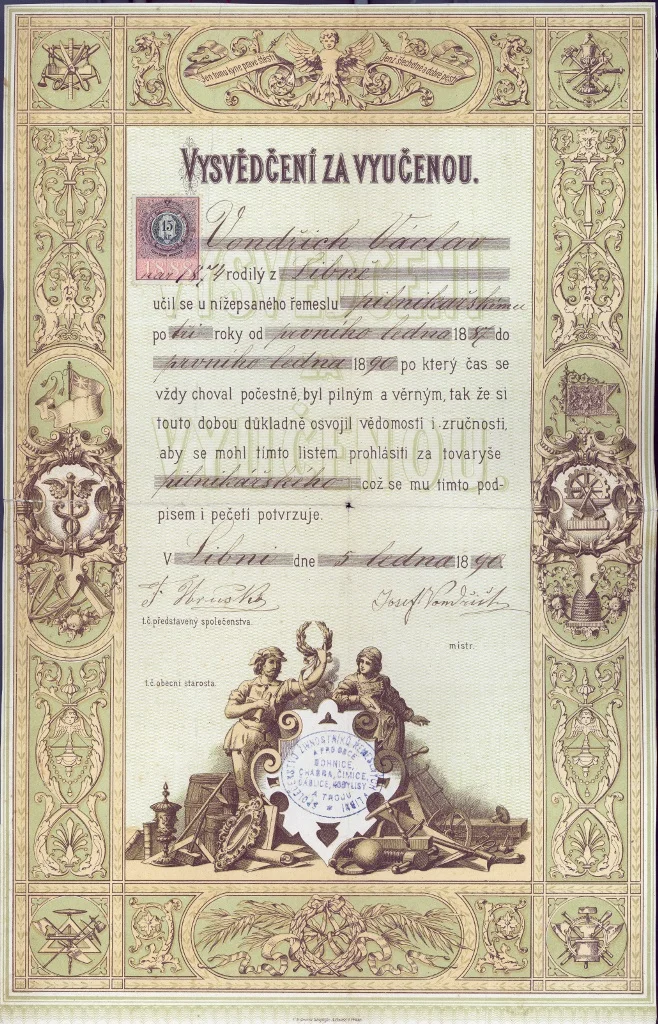 Jen tomu kyne pravé štěstí
Jenž šlechetně a dobře pěstí
VYSVĚDČENÍ ZA VYUČENOU.
15
kr.
Vondřich Václav
nar 1874 rodilý z Libně
učil se u nížepsaného řemeslu pilnikářskému
po tři roky od prvního ledna 1887 do
prvního ledna 1890 po který čas se
vždy choval počestně, byl pilným a věrným, tak že si
touto dobou důkladně osvojil vědomosti i zručnosti,
aby se mohl tímto listem prohlásiti za tovaryše
pilnikářského což se mu tímto pod-
pisem i pečetí potvrzuje.
V Libni dne 5 ledna 1890.
F. Hruska Josef Vondřich
t.č. představený společenstva.
mistr.
t.č. obecní starosta.
SPOLEČENSTVO ŽIVNOSTNÍKŮ V LIBNI
A PRO OBCE
BOHNICE,
CHABRA, ČIMICE,
ĎÁBLICE, KOBYLISY
A TROJU